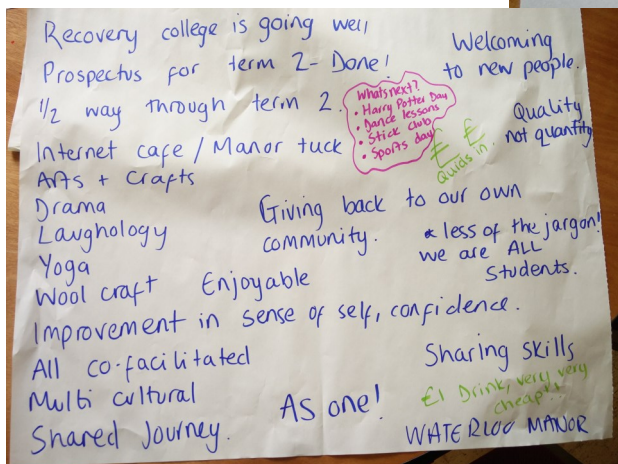 Recovery college is going well
Prospectus for term 2- Done!
1/2 way through term 2.
Welcoming
to new people.
Whats next?
• Harry Potter Day
• Dance lessons
• Stick club
• Sports day
£ £
Quids in.
Quality
not quantity
Internet cafe / Manor tuck
Arts + Crafts
Drama
Laughology
Yoga
Wool craft
Giving back to our own
community.
* less of the jargon!
we are ALL
Students.
Enjoyable
Improvement in sense of self, confidence.
All co-facilitated
Multi cultural
Shared Journey.
As one!
Sharing skills
£1 Drink, very, very
cheap!!
WATERLOO MANOR